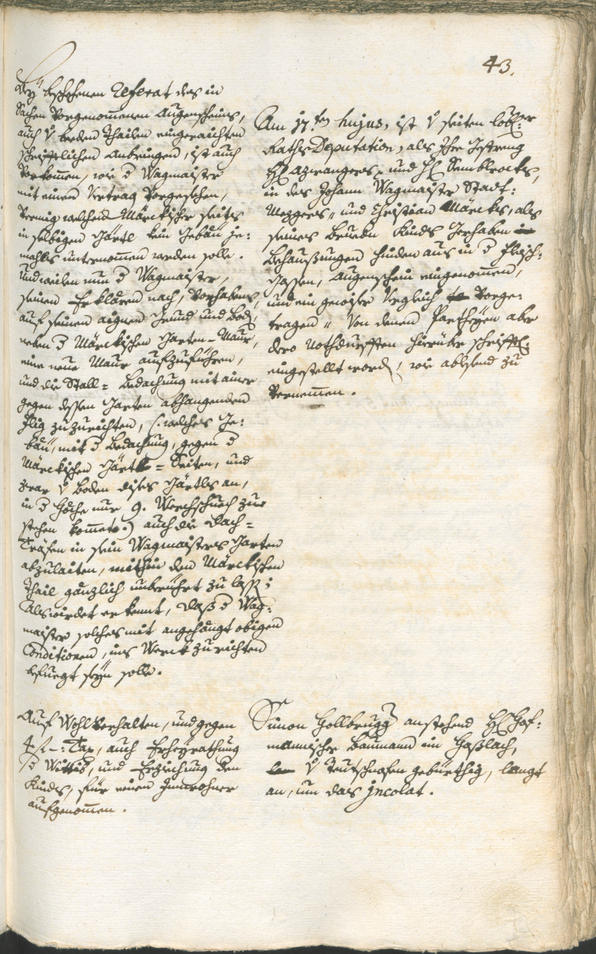 43.
Bey beschehenen Referat des in
Sachen vorgenommenen Augenscheins,
auch v. beeden Theilen eingereichten
schrifftlichen Anbringen, ist auch
vorkommen, wie d Wagmaister
mit einem Vertrag vorgesehen,
Vermig welchem Märckischer seits
in selbigen Gärtl kein Gebäu je-
mahls unternommen werden solle.
Und weilen nun d Wagmaister,
seinem Erklären nach, Vorhabens,
auf seinem aignen Grund und Boden,
neben d Märckischen Garten-Maur,
eine neue Maur aufzuführen,
und die Stall-Bedachung mit einer
gegen dessen Garten abhangenden
zuzurichten, (: welches Ge-
bäu, mit d Bedachung, gegen d
Märckischen Gärtl-Seiten, und
zwar v Boden dises Gärtls an,
in d Höche nur 9. Werchschuech zu
stehen kommete :) auch die Dach-
Trafen in sein Wagmaisters Garten
abzulaiten, mithin den Märckischen
Theil gänzlich unberührt zu lassen;
Als wirdet erkennt, daß d Wag-
maister solches mit angehängt obigen
Conditionen, ins Werk zu richten
befuegt seyn solle.
Am 17.ten hujus, ist v seiten löbl:r
Raths Deputation, als Ihr Gestreng
H: und H:
in des Johann Wagmaister Stadt-
Mezgers, und Christian Märcks, als
seines Kinds Gerhaben
Behaußungen hinden aus in d Fleisch-
Gassen, Augenschein eingenommen,
und ein gewisser Verglich vorge-
tragen, Von denen Partheyen aber
dero Nothdurfften hierüber schrifftl:
eingestellt worden, wie ablesend zu
vernemmen.
Auf Wohlverhalten, und gegen
4 f - : Tax, auch Erheyrathung
d Wittib, und Erziechung dem
Kinds, für einen Innwohner
aufgenommen.
Simon Hollbrugg anstehend H: Hof-
mannischer Baumann in Haßlach,
v Teutschnofen gebürthig, langt
an, um das Incolat.